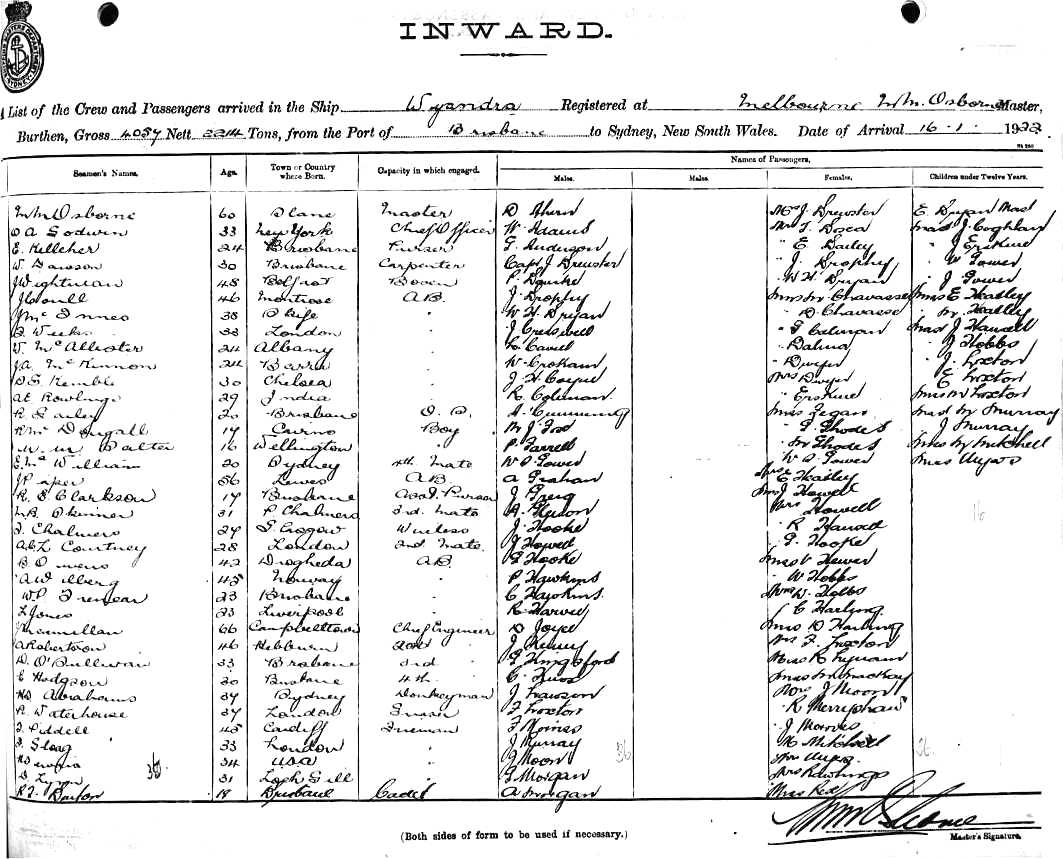 INWARD.
List of the Crew and Passengers arrived in the Ship Wyandra Registered at Melbourne W.M. Osborne Master,
Burthen, Gross 4059 Nett 2214 Tons, from the Port of Brisbane to Sydney, New South Wales. Date of Arrival 16.1. 1922
Seamen's Names. Age. Town or Country where Born. Capacity in which engaged. Names of Passengers.
Males. Males. Females. Children under Twelve Years.
WM Osborne 60 Master D Ahern Mrs J. Brewster E. Bryan Mast
D A Godwin 33 New York Chief Officer W Adams Mrs T. Mast J Coghlan
E. Kelleher 24 Brisbane Purser G. Anderson " E Bailey " J Erskine
W. Dawson 30 Brisbane Carpenter Capt J Brewster " J. Brophy " W Gower
J Wightman 48 Belfast Bosun P. Squire " W H. Bryan " J Gower
46 Montrose A.B. J. Brophy Miss M Chavasse Miss E Heasley
J Mc Innes 38 Fife " W H Bryan " D Chavasse " M. Heasley
Weeks 33 London " J Creswell " G Colman Mast J Howell
W. McAllister 24 Albany " Cavill " Dalma " J Hobbs
J.A. McKinnon 24 Barra " W. " Dwyer " J. Loxton
D.S. Kemble 30 Chelsea " J H Coyne Mrs Dwyer " E Loxton
A E Rowlings 29 India " R Coleman " Erskine Miss M Loxton
R G 20 Brisbane O.S. A. Cumming Miss Fegan Mast M Murray
R Mc Dougall 17 Boy M J Fox " G Rhodes " J Murray
W. M. Salter 16 Wellington " P. Farrell " M Rhodes Miss M Mitchell
E. Mc William 20 Sydney 4th Mate W D. Gower " W D. Gower Miss
J Piper 56 Lewes A B A Graham Miss E Heasley
R. S Clarkson 17 Brisbane Asst Purser J Greig Miss J Howell
Skinner 31 P Chalmers 3rd Mate Mrs Howell
J. Chalmers 24 Glasgow Wireless J. Hooke " R Howell
A.C.L Courtney 28 London 2nd Mate J Howell " G. Hooke
B Owens 42 Drogheda A.B. G Hooke Miss V Hewer
A W Ilberg 45 Norway " P Hawkins " W Hobbs
W.P Tremear 23 Brisbane " C Hawkins Miss W. Hobbs
L Jones 23 Liverpool " R Harvey " C Harling
J Macmillan 66 Campbelltown Chief Engineer D Joyce Miss D Harling
A Robertson 46 Hebburn 2nd J Kenny Mrs F. Loxton
D. O'Sullivan 33 Brisbane 3rd G Kingsford Miss R Lynam
C Hodgson 30 Brisbane 4th C Miss M Mackay
Abrahams 34 Sydney Donkeyman J Lawson Mrs J Moon
R Waterhouse 37 London Greaser F Loxton " R Merryshaw
J. Piddell 45 Cardiff Fireman F Moines " J Morris
J. Sloag 33 London " J Murray " M Mitchell
34 USA " J Moon
36 36 36 16
31 Loch Gill " G Morgan Mrs Rawlings
R J. Burton 18 Brisbane Cadet A Morgan Miss Reid
WM Osborne
Master's Signature.
(Both sides of form to be used if necessary.)